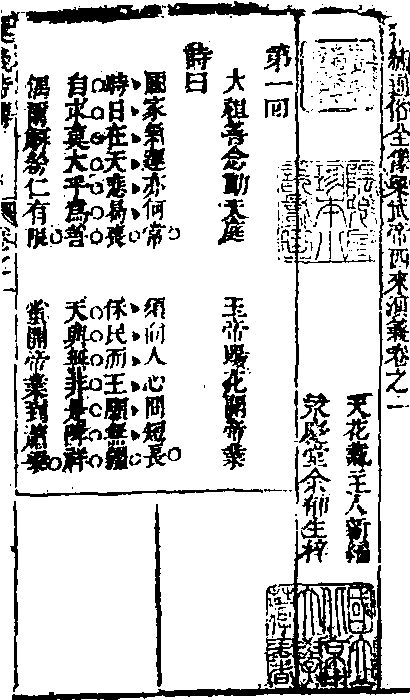 通俗全像梁武帝西來演義卷之一
天花藏主人新編
永慶堂余郁生梓
第一回
大祖善念動天庭　玉帝賜花開帝業
詩曰
國家氣運亦何常　須向人心問短長
時日在天悲易喪　保民而王願無疆
自求莫大乎爲善　天與無非是降祥
偶爾解紛仁有限　蚤開帝業到蕭梁